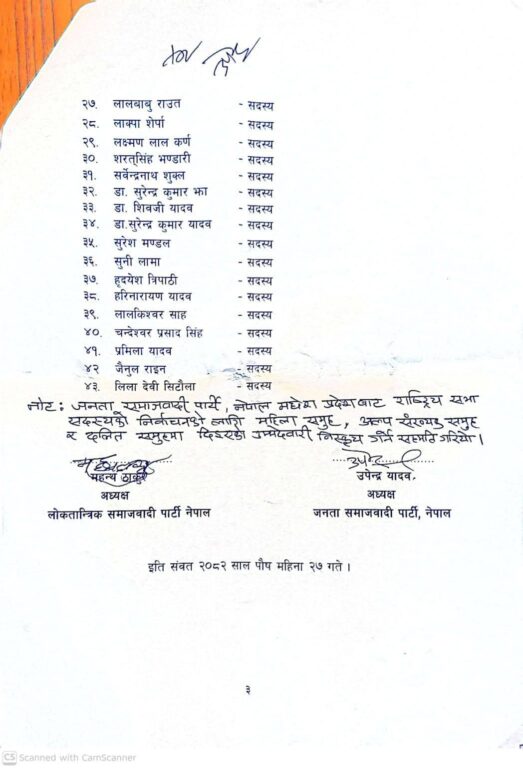 २७. लालबाबु राउत - सदस्य
२८. लाक्पा शेर्पा - सदस्य
२९. लक्ष्मण लाल कर्ण - सदस्य
३०. शरत्सिंह भण्डारी - सदस्य
३१. सर्वेन्द्रनाथ शुक्ल - सदस्य
३२. डा. सुरेन्द्र कुमार झा - सदस्य
३३. डा. शिवजी यादव - सदस्य
३४. डा.सुरेन्द्र कुमार यादव - सदस्य
३५. सुरेश मण्डल - सदस्य
३६. सुनी लामा - सदस्य
३७. हृदयेश त्रिपाठी - सदस्य
३८. हरिनारायण यादव - सदस्य
३९. लालकिश्वर साह - सदस्य
४०. चन्देश्वर प्रसाद सिंह - सदस्य
४१. प्रमिला यादव - सदस्य
४२ जैनुल राइन - सदस्य
४३. लिला देवी सिटौला - सदस्य
नोट: जनता समाजवादी पार्टी, नेपाल मधेश प्रदेशबाट राष्ट्रिय सभा
सदस्यको निर्वाचनको लागि महिला समुह, अल्प संख्यक समुह
र दलित समुहमा दिइएको उम्मेदवारी फिर्ता गर्न सहमति गरियो।
महन्थ ठाकुर उपेन्द्र यादव
अध्यक्ष अध्यक्ष
लोकतान्त्रिक समाजवादी पार्टी नेपाल जनता समाजवादी पार्टी, नेपाल
इति संवत २०८२ साल पौष महिना २७ गते ।
३
CS Scanned with CamScanner